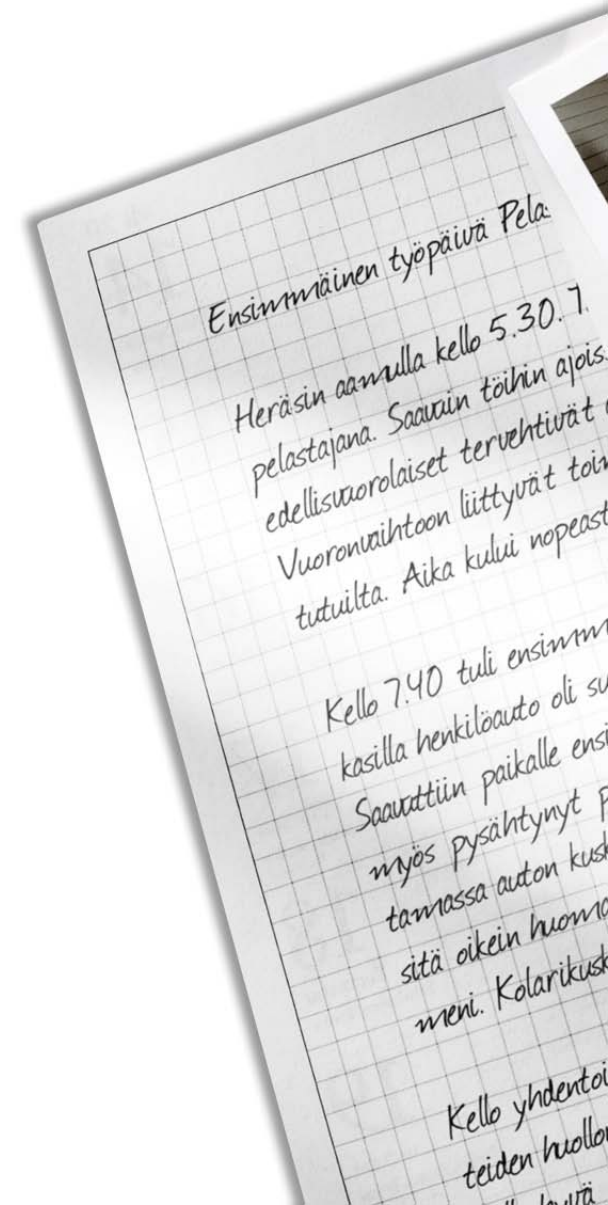 Ensimmäinen työpäivä Pela
Heräsin aamulla kello 5.30. 7.
pelastajana. Saavuin töihin ajois
edellisvuorolaiset tervehtivät
Vuoronvaihtoon liittyvät toim
tutuilta. Aika kului nopeast
Kello 7.40 tuli ensimm
kasilla henkilöauto oli su
Saavuttiin paikalle ensi
myös pysähtynyt p
tamassa auton kusk
sitä oikein huoma
meni. Kolarikusk
Kello yhdentoi
teiden huollon
hyvä